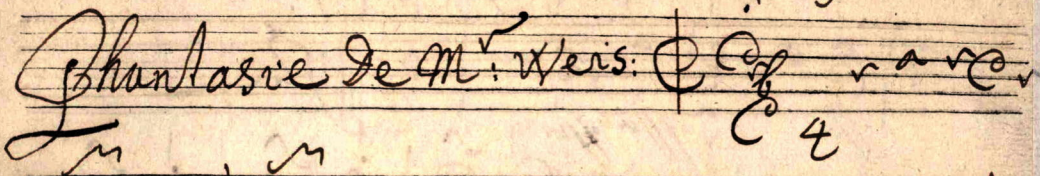 Phantasie De Mr: Weis: